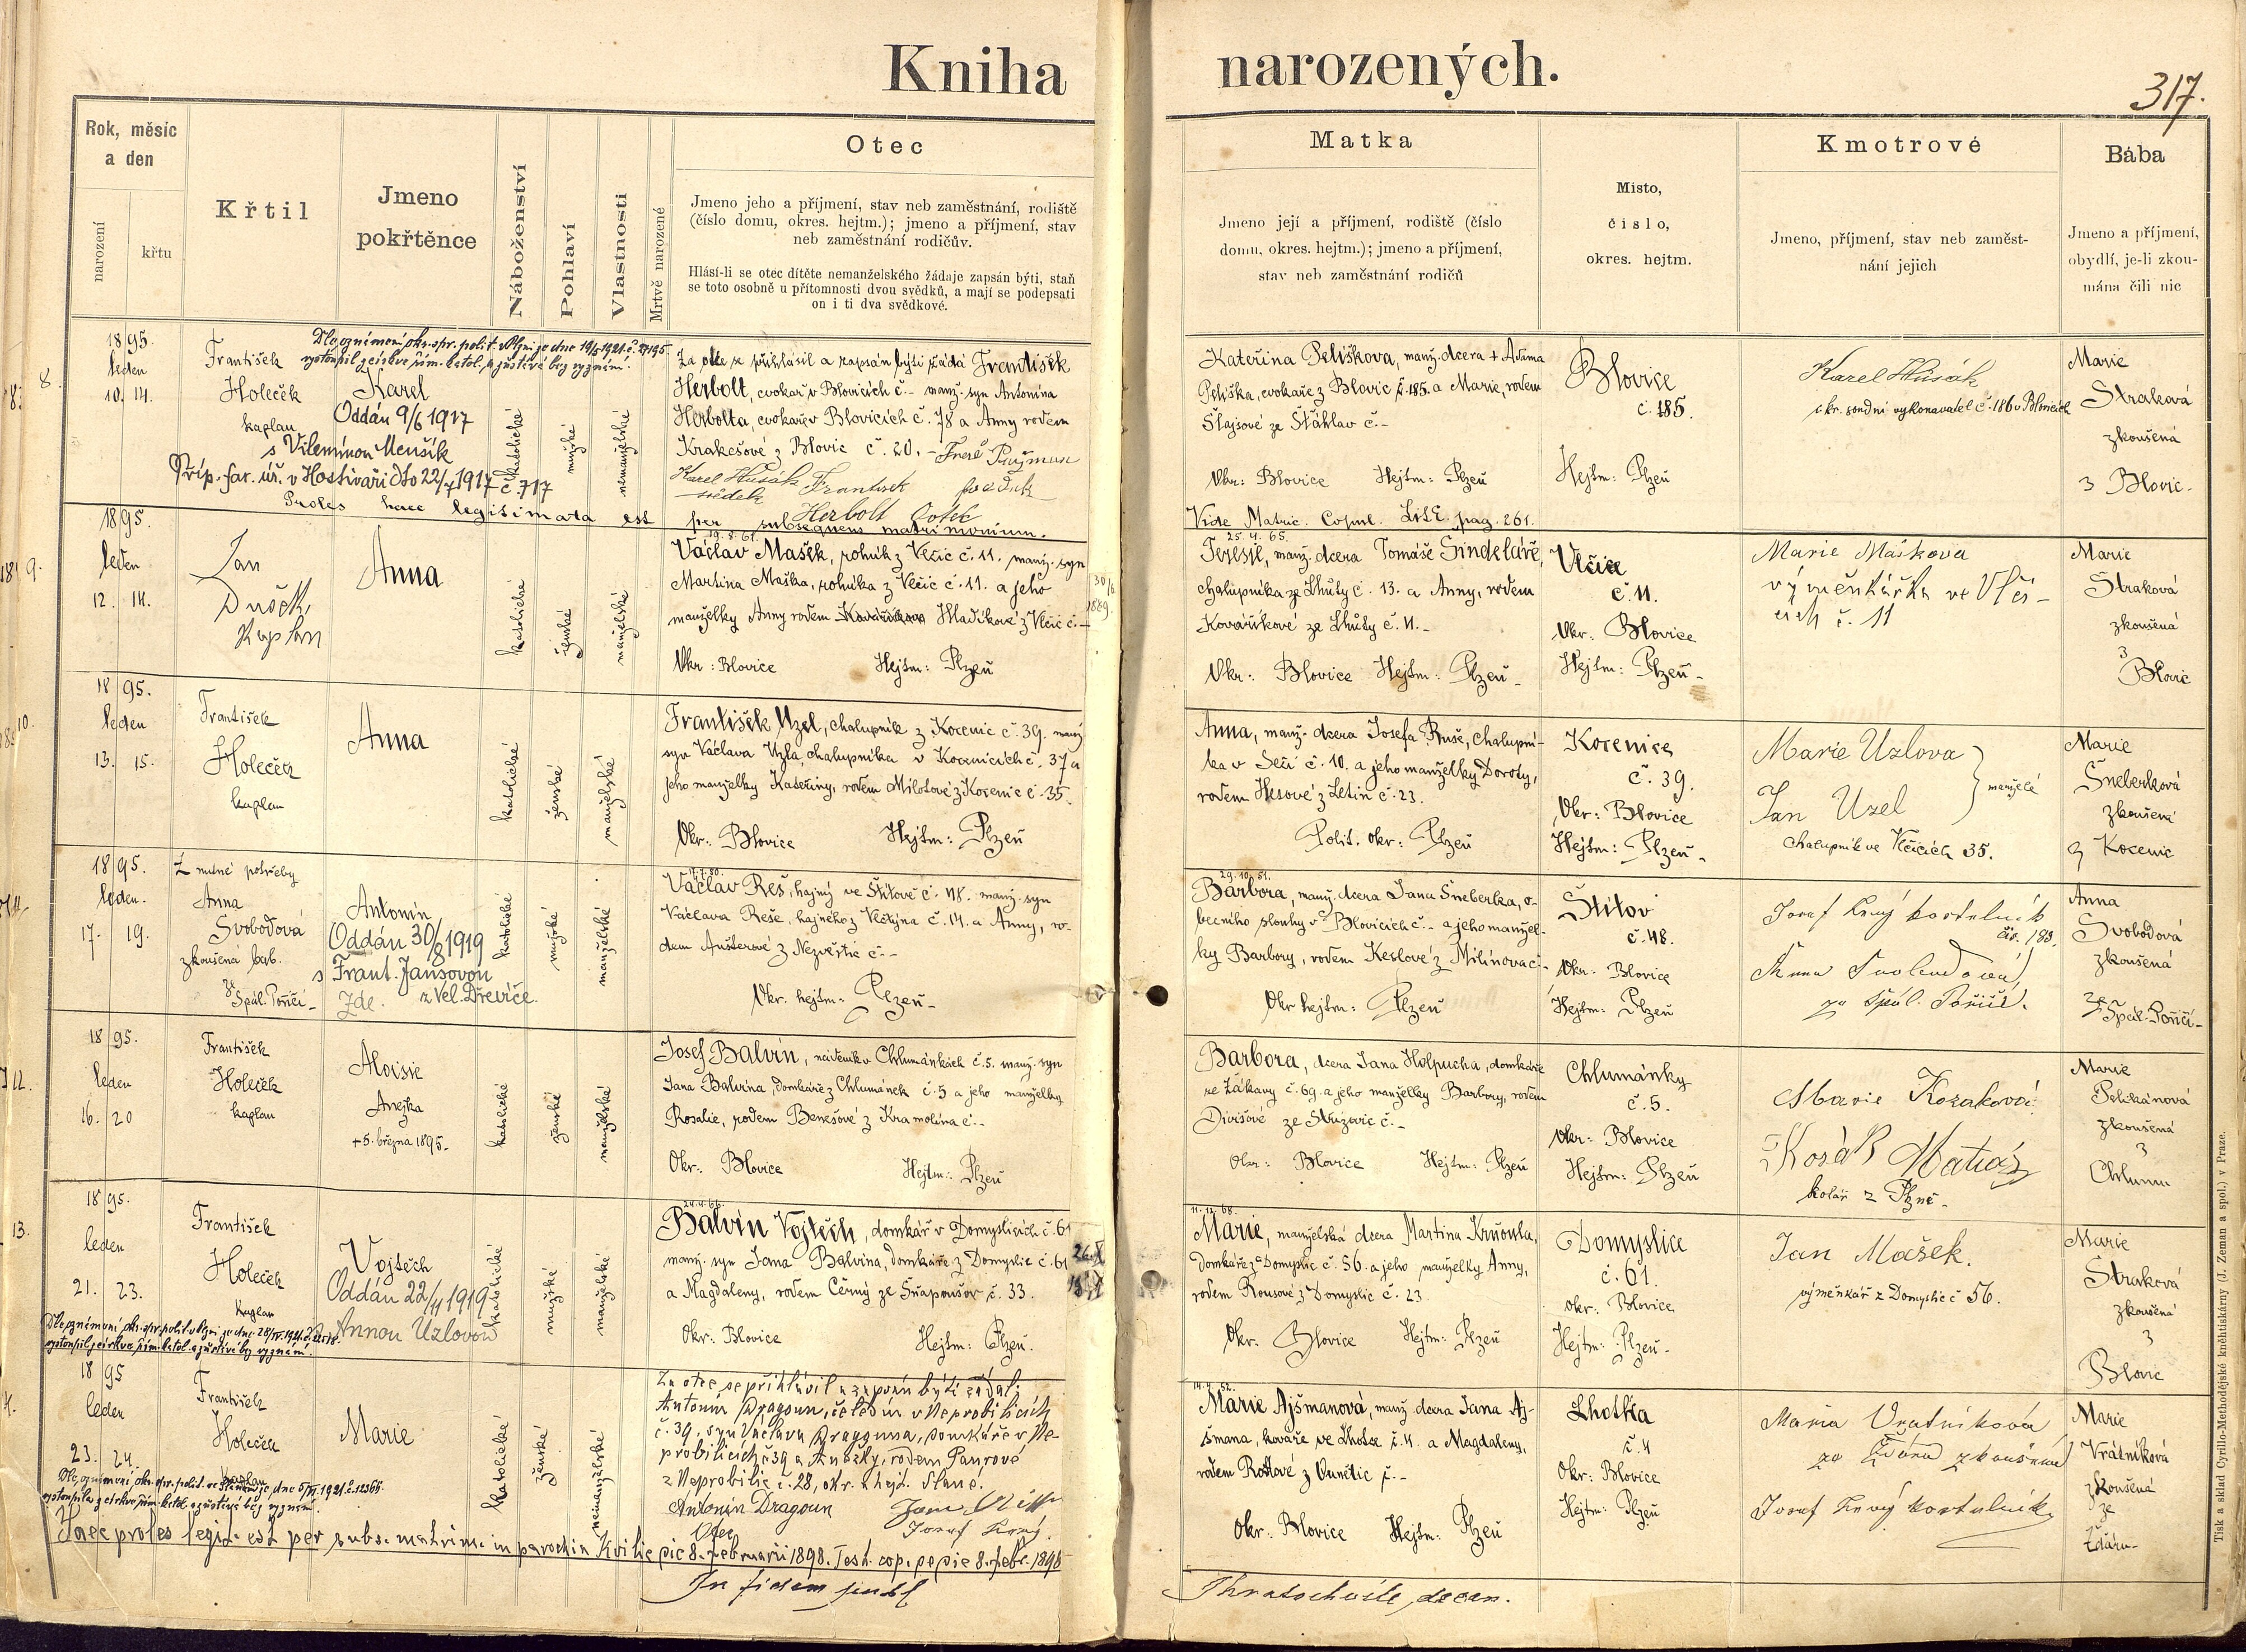 Kniha narozených.
317.
Rok, měsíc
a den
narození
křtu
Křtil
Jmeno
pokřtěnce
Náboženství
Pohlaví
Vlastnosti
Mrtvě narozené
Otec
Jmeno jeho a příjmení, stav neb zaměstnání, rodiště
(číslo domu, okres. hejtm.); jmeno a příjmení, stav
neb zaměstnání rodičův.
Hlásí-li se otec dítěte nemanželského žádaje zapsán býti, staň
se toto osobně u přítomnosti dvou svědků, a mají se podepsati
on i ti dva svědkové.
Matka
Jmeno její a příjmení, rodiště (číslo
domu, okres. hejtm.); jmeno a příjmení,
stav neb zaměstnání rodičů
Místo,
číslo,
okres. hejtm.
Kmotrové
Jmeno, příjmení, stav neb zaměst-
nání jejich
Bába
Jmeno a příjmení,
obydlí, je-li zkou-
mána čili nic
8.
1895.
leden
10. 14.
František
Holeček
kaplan
Dle oznámení okr. spr. polit. v Plzni ze dne 19/5 1921 č. 27195
vystoupil z církve řím. katol. a zůstává bez vyznání.
Karel
Oddán 9/6 1917
s Vilemínou Menšík
Příp. far. úř. v Hostivaři dto 22/7 1917 č. 717
katolické
mužské
nemanželské
Za otce se přihlásil a zapsán býti žádá František
Herbolt, cvokař v Blovicích č.- manž. syn Antonína
Herbolta, cvokaře v Blovicích č. 78 a Anny rodem
Krakešové z Blovic č. 20.-
Karel Husák František
svědek
Herbolt Otec
Proles haec legitimata est per subsequens matrimonium.
Kateřina Pelíškova, manž. dcera + Adama
Pelíška, cvokaře z Blovic č. 185. a Marie, rodem
Štajsové ze Šťáhlav č.-
Okr: Blovice Hejtm: Plzeň
Vide Matric. Copul. Litt. pag. 261.
Blovice
č. 185.
Hejtm: Plzeň
Karel Husák
c. kr. soudní vykonavatel č. 186 v Blovicích
Marie
Straková
zkoušená
z Blovic.
9.
1895.
leden
12. 14.
Jan
Dušek,
Kaplan
Anna
katolické
ženské
manželské
19. 8. 61.
Václav Mašek, rolník z Vlčic č. 11. manž. syn
Martina Maška, rolníka z Vlčic č. 11. a jeho
manželky Anny rodem Hladíkové z Vlčic č.-
Okr: Blovice Hejtm: Plzeň
1889.
25. 4. 65.
Teresie, manž. dcera Tomáše Šindeláře,
chalupníka ze Lhůty č. 13. a Anny, rodem
Kovaříkové ze Lhůty č. 11.-
Okr: Blovice Hejtm: Plzeň-
Vlčice
č. 11.
Okr: Blovice
Hejtm: Plzeň-
Marie Maškova
výměnkářka ve Vlči-
cích č. 11
Marie
Straková
zkoušená
z
Blovic
10.
1895.
leden
13. 15.
František
Holeček
kaplan
Anna
katolické
ženské
manželské
František Uzel, chalupník z Kocenic č. 39. manž
syn Václava Uzla, chalupníka v Kocenicích č. 37 a
jeho manželky Kateřiny, rodem Milotové z Kocenic č. 35.
Okr: Blovice Hejtm: Plzeň
Anna, manž. dcera Josefa Ruše, chalupní-
ka v Seči č. 10. a jeho manželky Doroty,
rodem Hesové z Letin č. 23.
Polit. okr: Plzeň
Kocenice
č. 39.
Okr: Blovice
Hejtm: Plzeň-
Marie Uzlova
Jan Uzel
manželé
chalupník ve Vlčicích 35.
Marie
Šneberková
zkoušená
z Kocenic
1895.
leden.
17. 19.
Z nutné potřeby
Anna
Svobodová
zkoušená bab.
ze Spál. Poříčí-
Antonín
Oddán 30/8 1919
s Frant. Jansovou
zde. z Vel. Dřevíče.
katolické
mužské
manželské
Václav Reš, hajný ve Štítově č. 48. manž. syn
Václava Reše, hajného z Vlčtejna č. 14. a Anny, ro-
dem Aušterové z Nezvěstic č.-
Okr. hejtm: Plzeň-
29. 10. 51.
Barbora, manž. dcera Jana Šneberka, o-
becního slouhy v Blovicích č.- a jeho manžel-
ky Barbory, rodem Keslové z Milínova č.-
Okr hejtm: Plzeň
Štítov
č. 48.
Okr: Blovice
Hejtm: Plzeň
Josef Lrný kostelník
čís. 183.
Anna Svobodová,
ze Spál. Poříčí.
Anna
Svobodová
zkoušená
ze Spál. Poříčí-
12.
1895.
leden
16. 20
František
Holeček
kaplan
Aloisie
Anežka
+ 5. března 1895.
katolické
ženské
manželské
Josef Balvín, nádeník v Chlumánkách č. 5. manž. syn
Jana Balvína, domkáře z Chlumánek č. 5 a jeho manželky
Rosalie, rodem Benešové z Kramolína č.-
Okr: Blovice Hejtm: Plzeň
Barbora, dcera Jana Holpucha, domkáře
ze Žákavy č. 69. a jeho manželky Barbory, rodem
Divišové ze Struzovic č.-
Okr: Blovice Hejtm: Plzeň
Chlumánky
č. 5.
Okr: Blovice
Hejtm: Plzeň
Marie Kozaková.
Kosák Matiáš
kolář z Plzně-
Marie
Pelikánová
zkoušená
z
Chlumu
13.
1895.
leden
21. 23.
František
Holeček
Kaplan
Dle oznámení okr. spr. polit. v Plzni ze dne 28/IV. 1921 č.
vystoupil z církve řím. katol. a zůstává bez vyznání.
Vojtěch
Oddán 22/11 1919
s Annou Uzlovou
katolické
mužské
manželské
24. 4. 66.
Balvín Vojtěch, domkář v Domyslicích č. 61
manž. syn Jana Balvína, domkáře z Domyslic č. 61
a Magdaleny, rodem Černý ze Sňapoušov č. 33.
Okr: Blovice Hejtm: Plzeň.
11. 12. 68.
Marie, manželská dcera Martina Krňoula,
domkáře z Domyslic č. 56. a jeho manželky Anny,
rodem Rousové z Domyslic č. 23.
Okr. Blovice Hejtm: Plzeň
Domyslice
č. 61.
okr: Blovice
Hejtm: Plzeň-
Jan Mašek.
výměnkář z Domyslic č 56.
Marie
Straková
zkoušená
z
Blovic
1895
leden
23. 24.
František
Holeček
kaplan
Dle oznámení okr. spr. polit. ve Slaném ze dne 5/VI. 1921 č. 12365
vystoupila z církve řím. katol. a zůstává bez vyznání.
Marie
katolické
ženské
nemanželské
Za otce se přihlásil a zapsán býti žádal:
Antonín Dragoun, čeledín v Neprobilicích
č. 39, syn Václava Dragouna, domkáře v Ne-
probilicích č 39 a Anežky, rodem Paurové
z Neprobilic č. 28, okr. a hejt. Slané.
Antonín Dragoun
Otec
14. 4. 52.
Marie Ajšmanová, manž. dcera Jana Aj-
šmana, kováře ve Lhotce č. 4. a Magdaleny,
rodem Rottové z Vunětic č.-
Okr: Blovice Hejtm: Plzeň
Lhotka
č. 4
Okr: Blovice
Hejtm: Plzeň
Maria Vratníková
ze Ždáru zkoušená
Josef Lrný kostelník.
Marie
Vrátníková
zkoušená
ze
Ždáru-
Haec proles legit. est per subs. matrim. in parochia Kvílic die 8. Februarii 1898. Test. cop. de die 8. Febr. 1898
In fidem
Thratochvíle, decan.
Tisk a sklad Cyrillo-Methodějské kněhtiskárny (J. Zeman a spol.) v Praze.